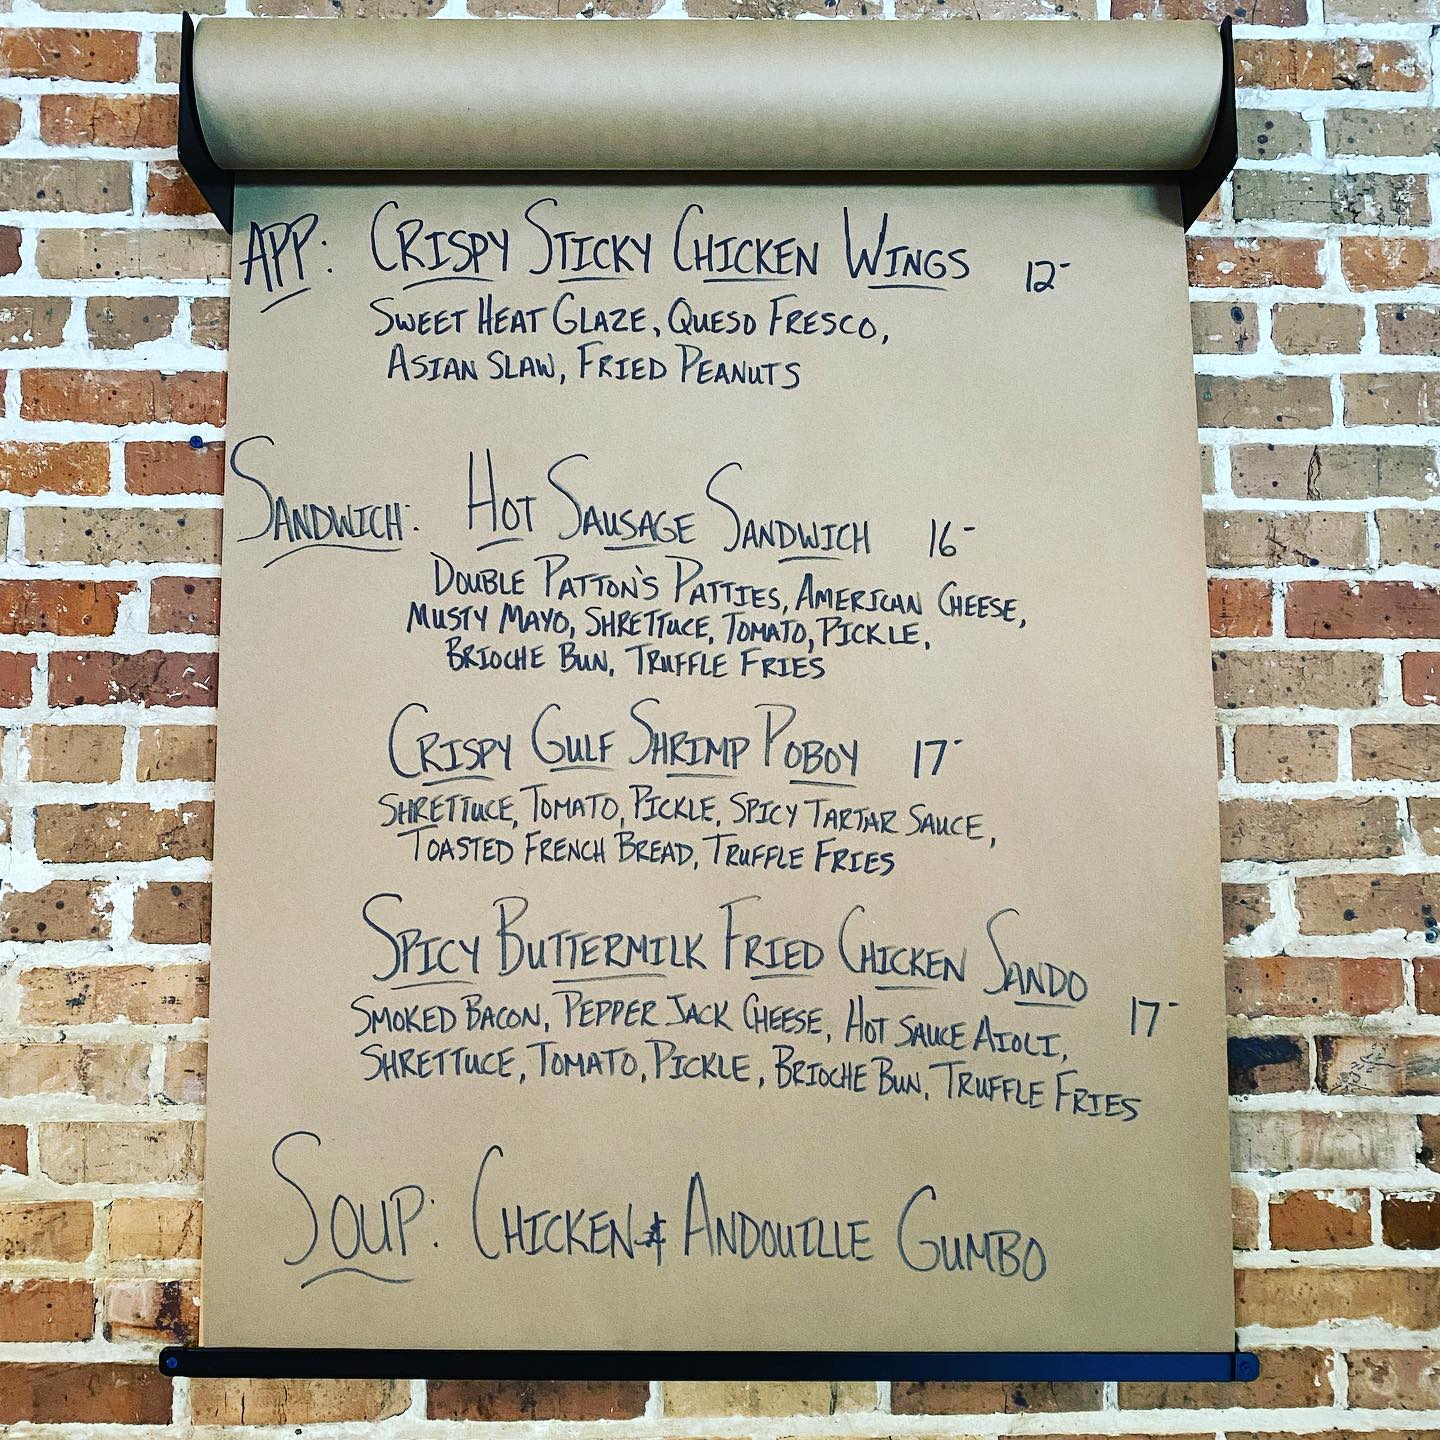 APP: CRISPY STICKY CHICKEN WINGS 12-
SWEET HEAT GLAZE, QUESO FRESCO,
ASIAN SLAW, FRIED PEANUTS
SANDWICH: HOT SAUSAGE SANDWICH 16-
DOUBLE PATTON'S PATTIES, AMERICAN CHEESE,
MUSTY MAYO, SHRETTUCE, TOMATO, PICKLE,
BRIOCHE BUN, TRUFFLE FRIES
CRISPY GULF SHRIMP POBOY 17-
SHRETTUCE, TOMATO, PICKLE, SPICY TARTAR SAUCE,
TOASTED FRENCH BREAD, TRUFFLE FRIES
SPICY BUTTERMILK FRIED CHICKEN SANDO 17-
SMOKED BACON, PEPPER JACK CHEESE, HOT SAUCE AIOLI,
SHRETTUCE, TOMATO, PICKLE, BRIOCHE BUN, TRUFFLE FRIES
SOUP: CHICKEN & ANDOUILLE GUMBO